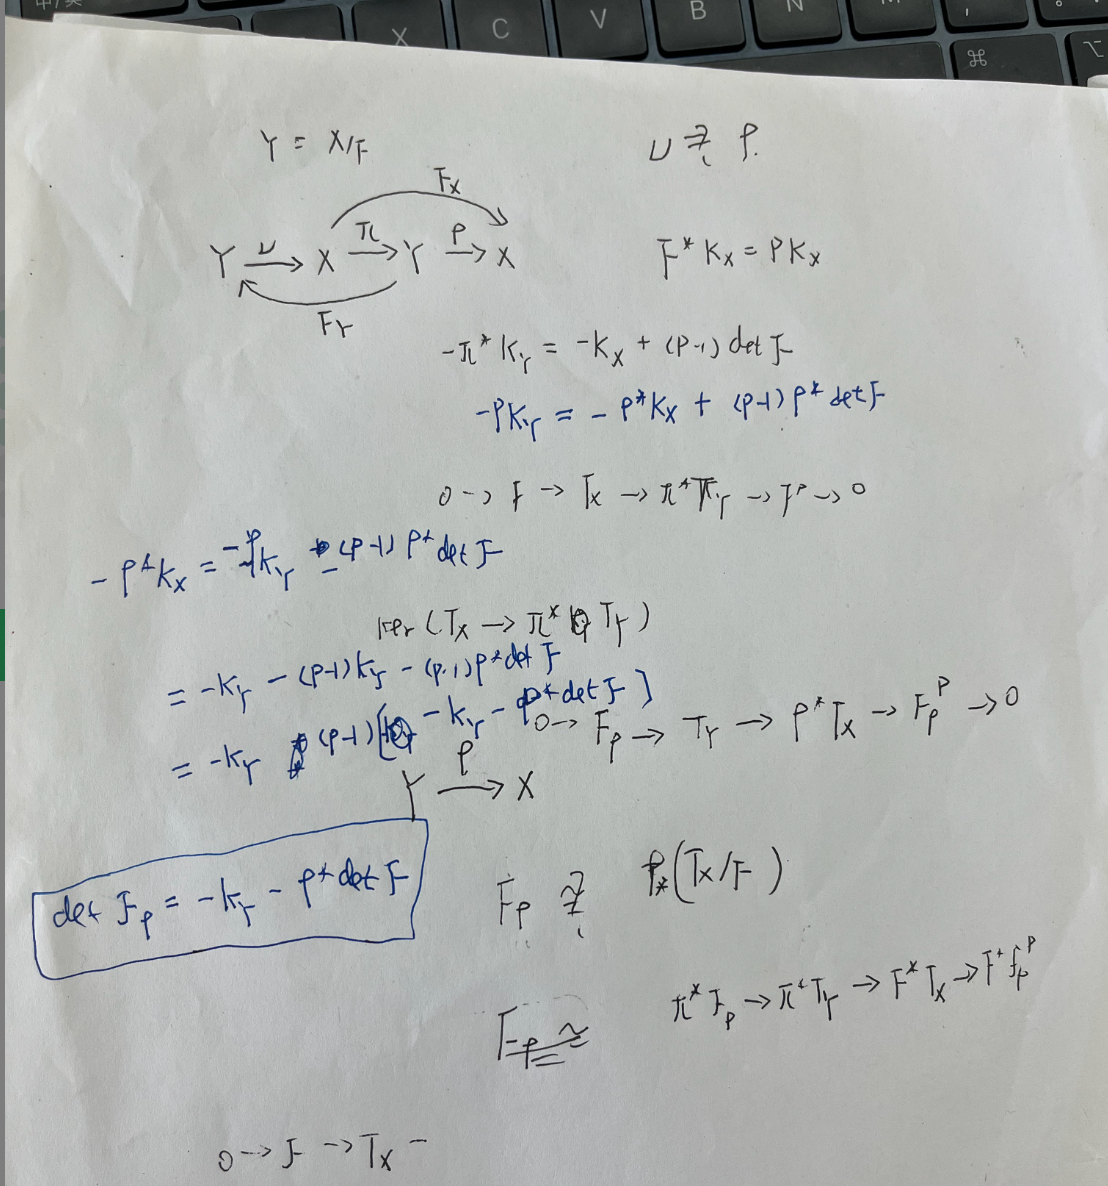 X C V B N M ,
⌘ ⌥
Y = X/F
F_X
Y →^ν X →^π Y →^ρ X
F_Y
ν ρ.
F* K_X = P K_X
-π* K_Y = -K_X + (P-1) det F
-P K_Y = - ρ* K_X + (P-1) ρ* det F
0 → F → T_X → π* T_Y → F^P → 0
- ρ* K_X = -P K_Y - (P-1) ρ* det F
ker (T_X → π* T_Y)
= -K_Y - (P-1) K_Y - (P-1) ρ* det F
= -K_Y + (P-1) [ -K_Y - ρ* det F ]
0 → F_ρ → T_Y → ρ* T_X → F_ρ^P → 0
Y →^ρ X
det F_ρ = -K_Y - ρ* det F
F_ρ ρ_* (T_X/F)
π* F_ρ → π* T_Y → F* T_X → F* F_ρ^P
F_ρ ≃
0 → F → T_X -